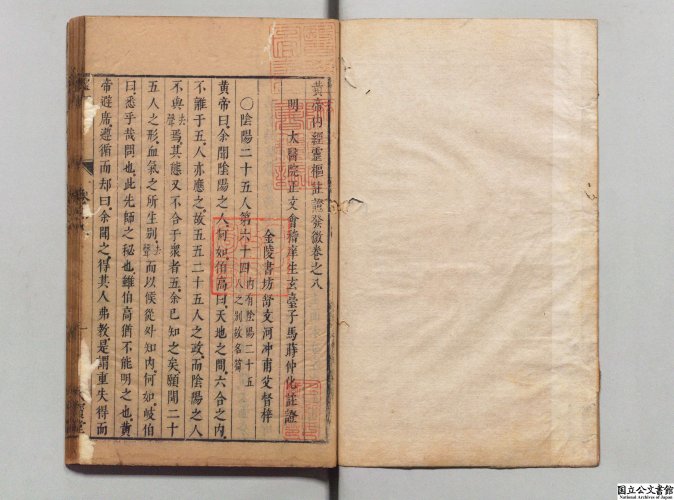 黃帝內經靈樞註證發微卷之八
明 太醫院正文會稽庠生玄臺子馬蒔仲化註證
金陵書坊 河冲甫 督梓
〇陰陽二十五人第六十四 內有陰陽二十五人之別故名篇
黃帝曰余聞陰陽之人何如伯高曰天地之間六合之內
不離于五人亦應之故五五二十五人之政而陰陽之人
不與去聲焉其態又不合于眾者五余已知之矣願聞二十
五人之形血氣之所生別去聲而以候從外知內何如岐伯
曰悉乎哉問也此先師之秘也雖伯高猶不能明之也黃
帝避席遵循而却曰余聞之得其人弗教是謂重失得而
国立公文書館
National Archives of Japan